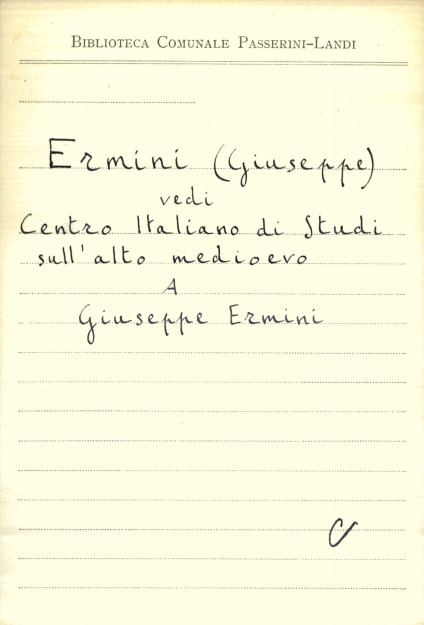 Biblioteca Comunale Passerini-Landi
Ermini (Giuseppe)
vedi
Centro Italiano di Studi
sull'alto medioevo
A
Giuseppe Ermini